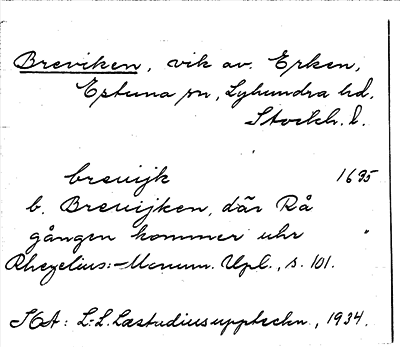 Breviken, vik av Erken,
Estuna sn, Lyhundra hd.
Stockh. l.
brevijk 1695
b. Brevijken, där Rå
gången kommer uhr "
Rhezelius:-Monum. Upl., s. 101.
SOA: L-L. Læstadius uppteckn., 1934.